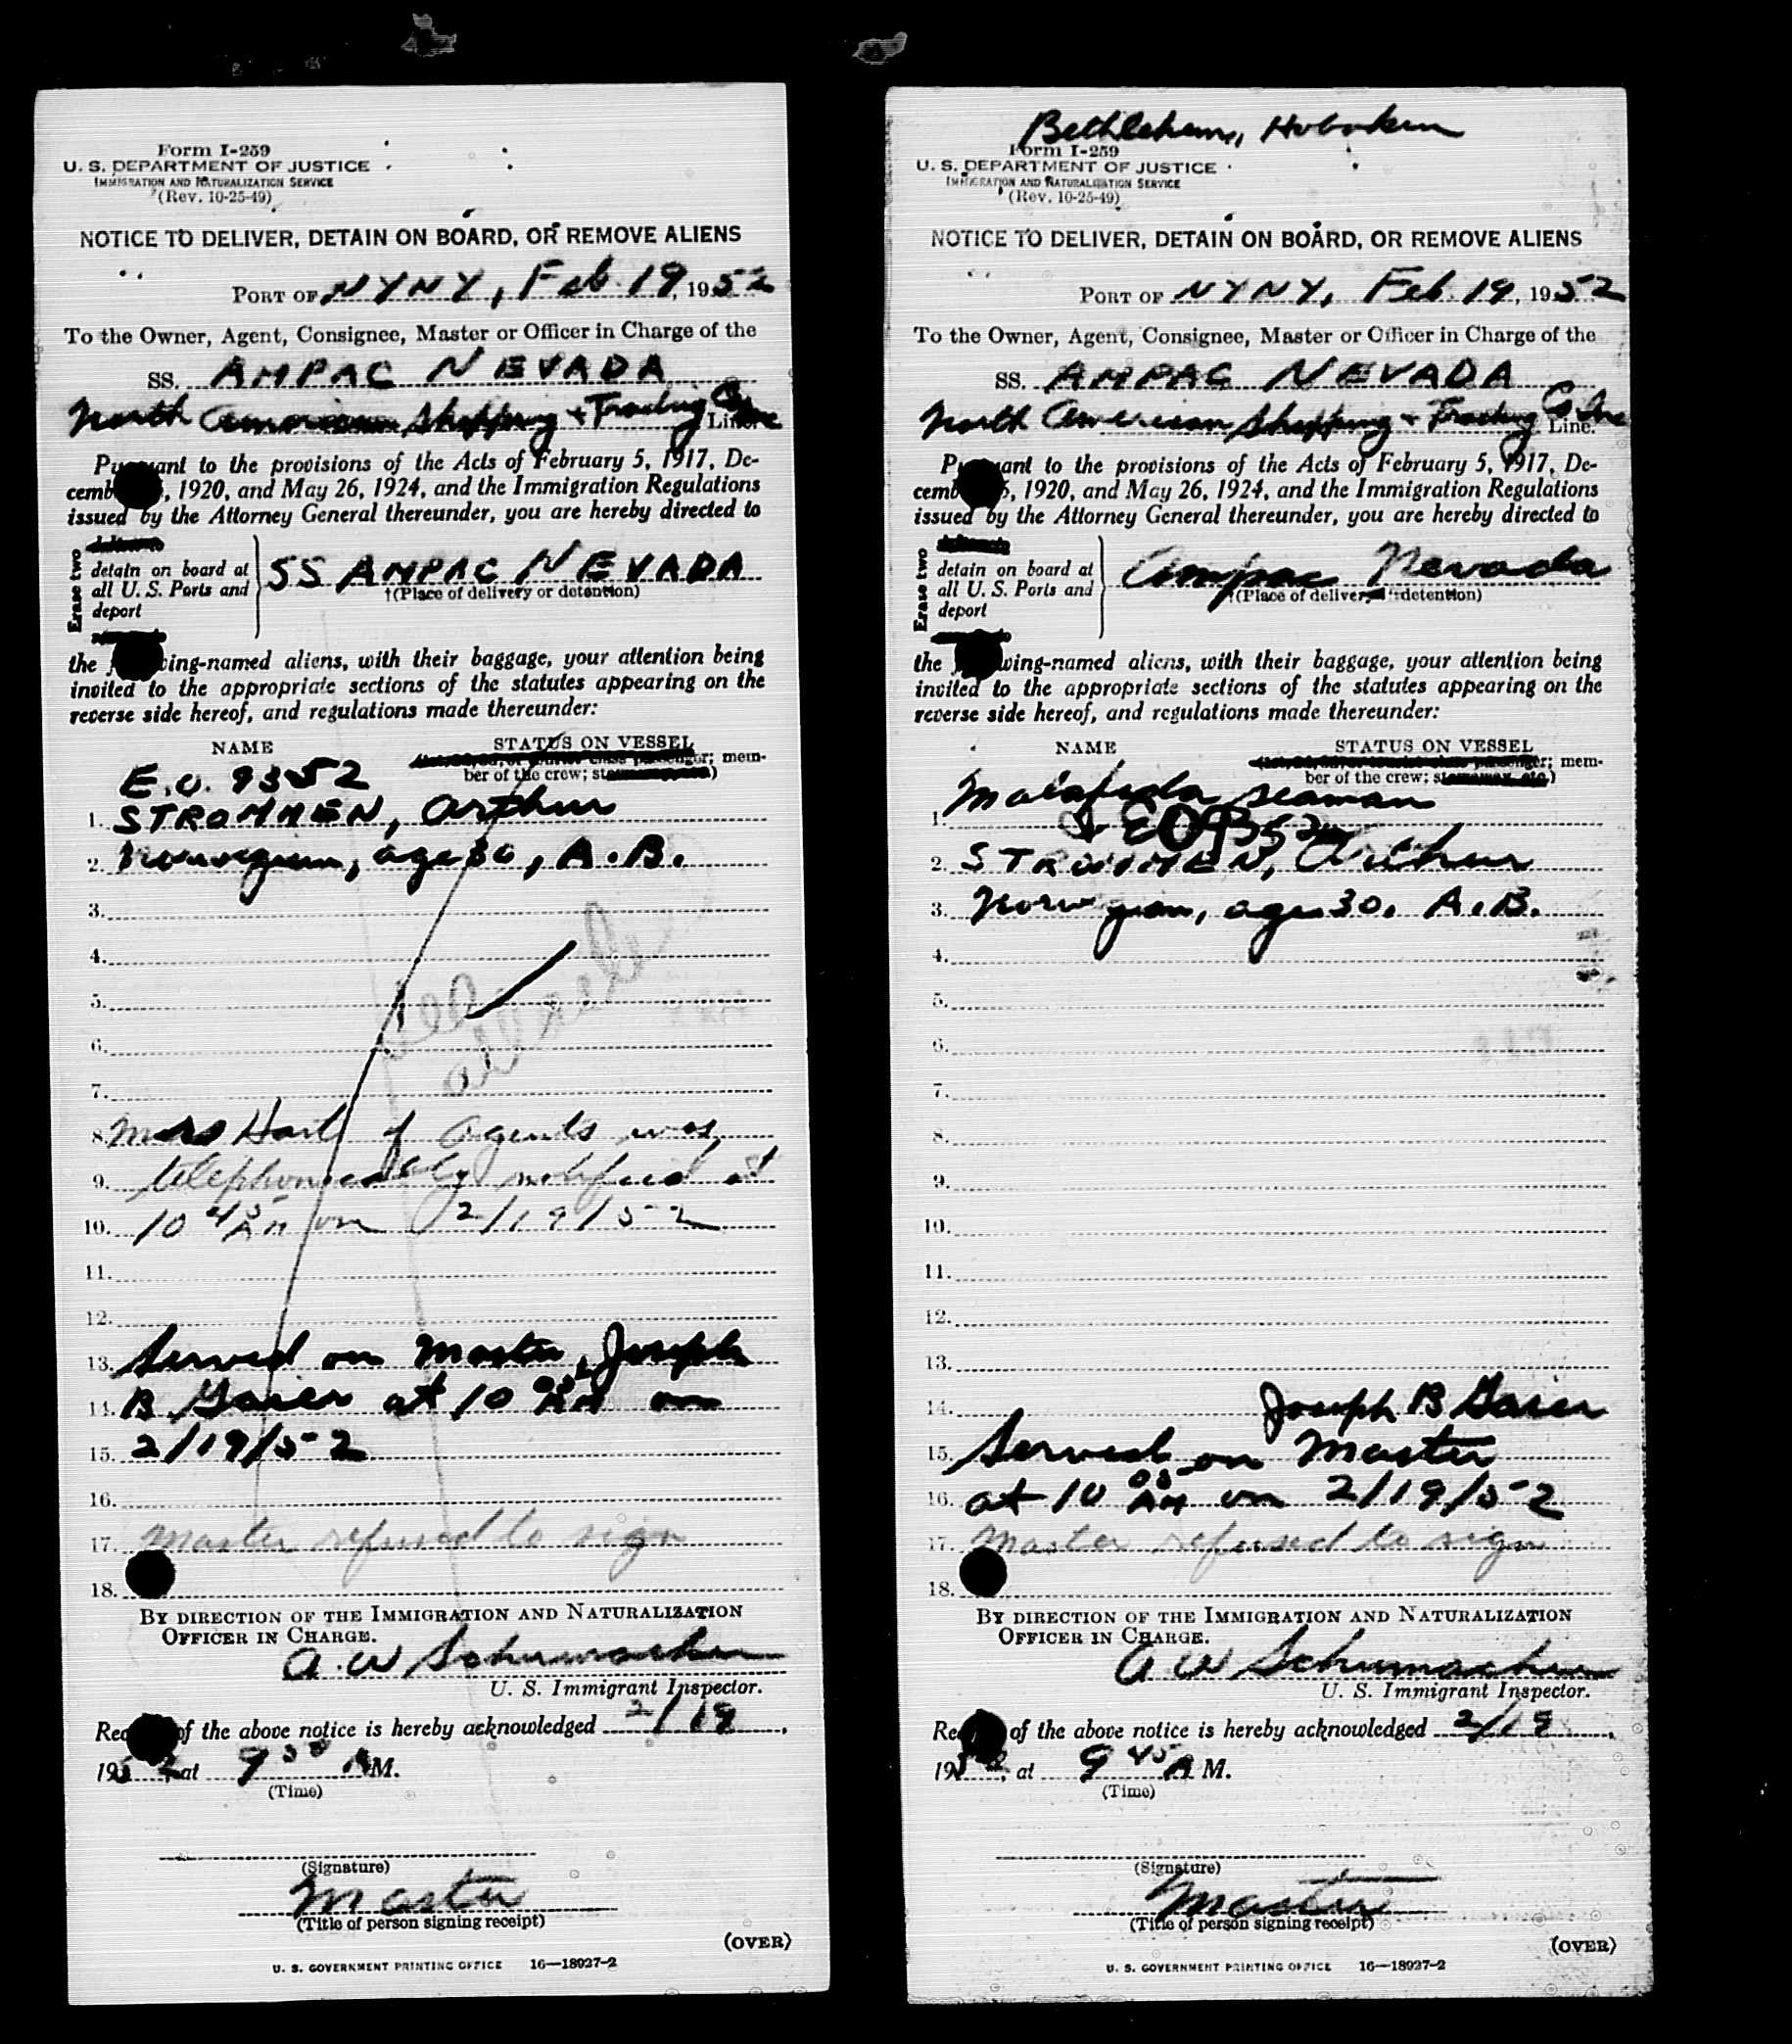 Form I-259
U. S. DEPARTMENT OF JUSTICE
IMMIGRATION AND NATURALIZATION SERVICE
(Rev. 10-25-49)
NOTICE TO DELIVER, DETAIN ON BOARD, OR REMOVE ALIENS
PORT OF NYNY, Feb 19, 1952
To the Owner, Agent, Consignee, Master or Officer in Charge of the
SS. AMPAC NEVADA
North American Shipping & Trading Co Inc Line.
Pursuant to the provisions of the Acts of February 5, 1917, De-
cemb , 1920, and May 26, 1924, and the Immigration Regulations
issued by the Attorney General thereunder, you are hereby directed to
Erase two
detain on board at
all U. S. Ports and
deport
SS AMPAC NEVADA
†(Place of delivery or detention)
the wing-named aliens, with their baggage, your attention being
invited to the appropriate sections of the statutes appearing on the
reverse side hereof, and regulations made thereunder:
NAME STATUS ON VESSEL
mem-
ber of the crew;
E.O. 9352
1. STROMMEN, Arthur
2. Norwegian, age 30, A.B.
3.
4.
5.
6.
7.
8. Hart of agents was
9. telephonically notified at
10. 10 45 AM on 2/19/52
11.
12.
13. Served on Master, Joseph
14. B. Gaier at 10 05 AM on
15. 2/19/52
16.
17. Master refused to sign
18.
BY DIRECTION OF THE IMMIGRATION AND NATURALIZATION
OFFICER IN CHARGE.
A. W Schumacher
U. S. Immigrant Inspector.
Rec of the above notice is hereby acknowledged 2/19,
1952, at 9 AM.
(Time)
(Signature)
Master
(Title of person signing receipt)
(OVER)
U. S. GOVERNMENT PRINTING OFFICE 16—18927-2
Bethlehem, Hoboken
Form I-259
U. S. DEPARTMENT OF JUSTICE
IMMIGRATION AND NATURALIZATION SERVICE
(Rev. 10-25-49)
NOTICE TO DELIVER, DETAIN ON BOARD, OR REMOVE ALIENS
PORT OF NYNY, Feb. 19, 1952
To the Owner, Agent, Consignee, Master or Officer in Charge of the
SS. AMPAC NEVADA
North American Shipping & Trading Co Inc Line.
Pursuant to the provisions of the Acts of February 5, 1917, De-
cemb 5, 1920, and May 26, 1924, and the Immigration Regulations
issued by the Attorney General thereunder, you are hereby directed to
Erase two
detain on board at
all U. S. Ports and
deport
Ampac Nevada
†(Place of delivery detention)
the wing-named aliens, with their baggage, your attention being
invited to the appropriate sections of the statutes appearing on the
reverse side hereof, and regulations made thereunder:
NAME STATUS ON VESSEL
mem-
ber of the crew;
1. Malafida seaman
EO9352
2. STROMMEN, Arthur
3. Norwegian, age 30. A.B.
4.
5.
6.
7.
8.
9.
10.
11.
12.
13.
14. Joseph B Gaier
15. Served on Master
16. at 10 05 AM on 2/19/52
17. Master refused to sign
18.
BY DIRECTION OF THE IMMIGRATION AND NATURALIZATION
OFFICER IN CHARGE.
A W Schumacher
U. S. Immigrant Inspector.
Rec of the above notice is hereby acknowledged 2/19,
1952, at 9 45 A M.
(Time)
(Signature)
Master
(Title of person signing receipt)
(OVER)
U. S. GOVERNMENT PRINTING OFFICE 16—18927-2